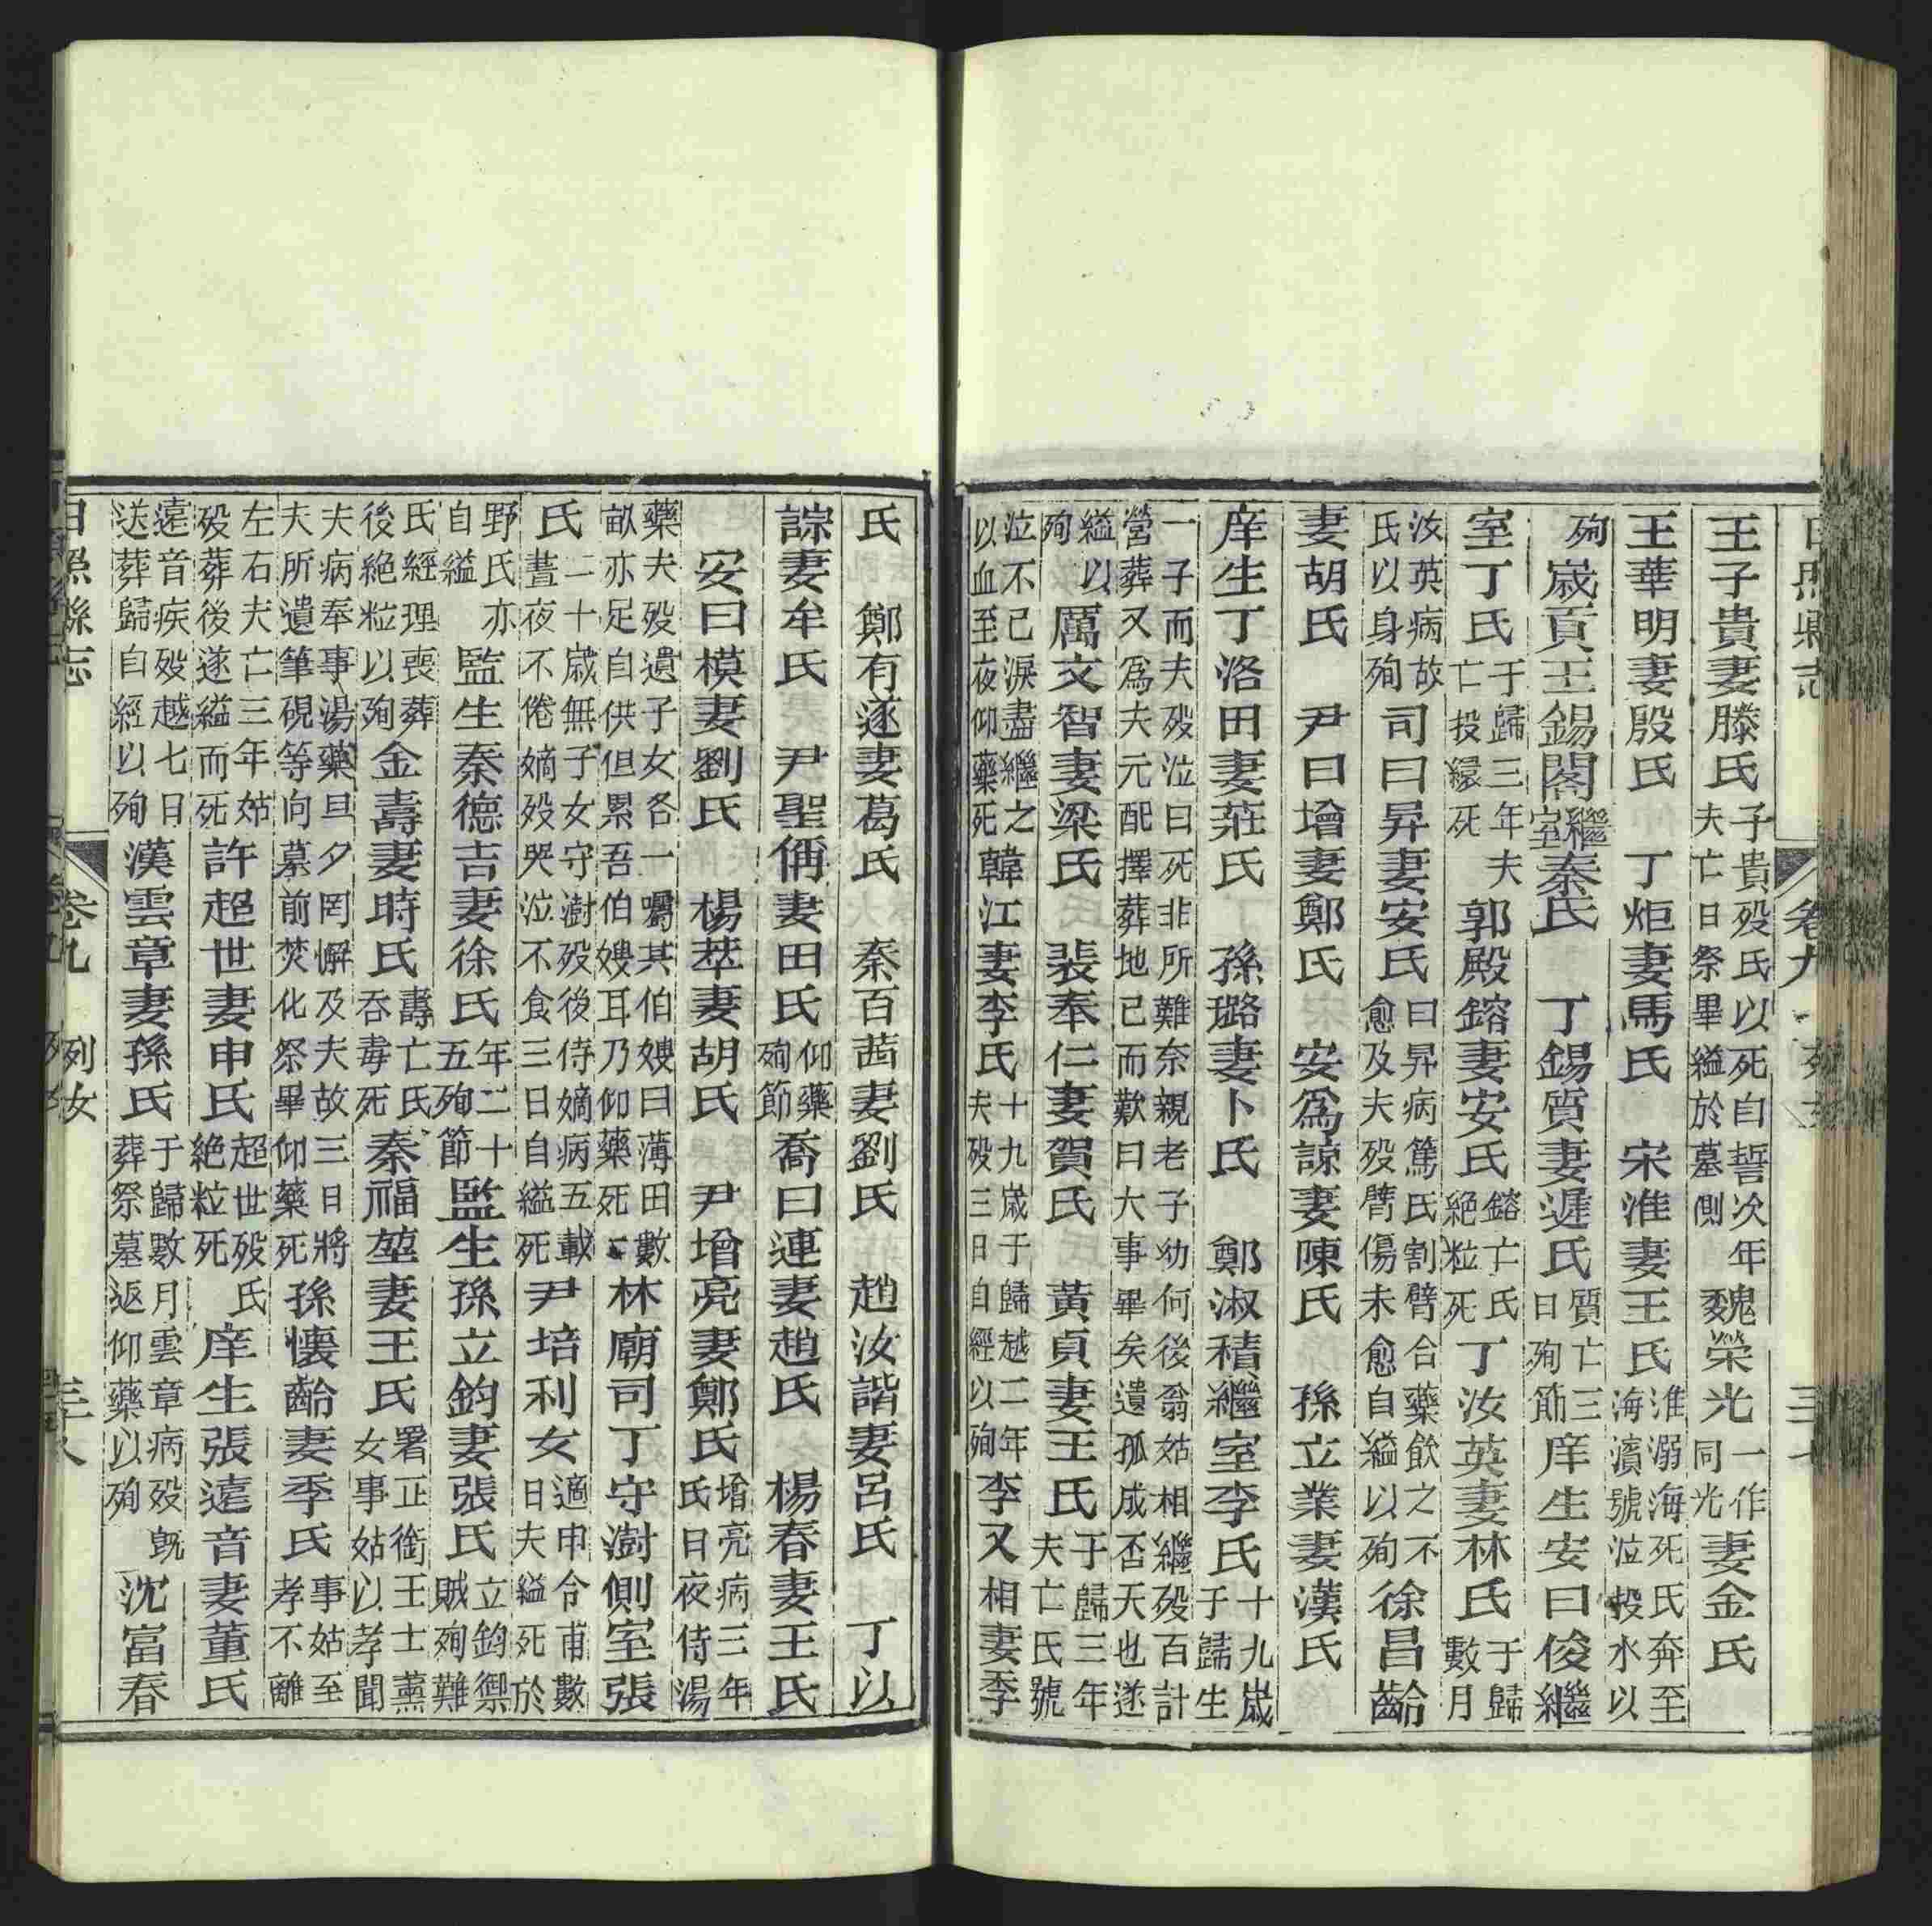 日照縣志 卷九 三十七
王子貴妻滕氏 子貴歿氏以死自誓次年夫亡日祭畢縊於墓側 魏榮光 一作同光 妻金氏
王華明妻殷氏 丁炬妻馬氏 宋淮妻王氏 淮溺海死氏奔至海濱號泣投水以
殉 歲貢王錫閣繼室秦氏 丁錫質妻遲氏 質亡三日殉節 庠生安曰俊繼
室丁氏 于歸三年夫亡投繯死 郭殿鎔妻安氏 鎔亡氏絶粒死 丁汝英妻林氏 于歸數月
汝英病故氏以身殉 司曰昇妻安氏 曰昇病篤氏割臂合藥飲之不愈及夫歿臂傷未愈自縊以殉 徐昌齡
妻胡氏 尹曰增妻鄭氏 安爲諒妻陳氏 孫立業妻漢氏
庠生丁洛田妻莊氏 孫璐妻卜氏 鄭淑積繼室李氏 十九歲于歸生
一子而夫歿泣曰死非所難奈親老子幼何後翁姑相繼歿百計營葬又爲夫元配擇葬地已而歎曰大事畢矣遺孤成否天也遂
縊以殉 厲文智妻梁氏 裴奉仁妻賀氏 黃貞妻王氏 于歸三年夫亡氏號
泣不已淚盡繼之以血至夜仰藥死 韓江妻李氏 十九歲于歸越二年夫歿三日自經以殉 李又相妻李
氏 鄭有遂妻葛氏 秦百茜妻劉氏 趙汝諧妻呂氏 丁以
誴妻牟氏 尹聖偁妻田氏 仰藥殉節 喬曰連妻趙氏 楊春妻王氏
安曰模妻劉氏 楊萃妻胡氏 尹增亮妻鄭氏 增亮病三年氏日夜侍湯
藥夫歿遺子女各一囑其伯嫂曰薄田數畝亦足自供但累吾伯嫂耳乃仰藥死 林廟司丁守澍側室張
氏 二十歲無子女守澍歿後侍嫡病五載晝夜不倦嫡歿哭泣不食三日自縊死 尹培利女 適申令甫數日夫縊死於
野氏亦自縊 監生秦德吉妻徐氏 年二十五殉節 監生孫立鈞妻張氏 立鈞禦賊殉難
氏經理喪葬後絶粒以殉 金壽妻時氏 壽亡氏吞毒死 秦福堃妻王氏 署正銜王士薰女事姑以孝聞
夫病奉事湯藥旦夕罔懈及夫故三日將夫所遺筆硯等向墓前焚化祭畢仰藥死 孫懷齡妻季氏 事姑至孝不離
左右夫亡三年姑歿葬後遂縊而死 許超世妻申氏 超世歿氏絶粒死 庠生張遠音妻董氏
遠音疾歿越七日送葬歸自經以殉 漢雲章妻孫氏 于歸數月雲章病歿旣葬祭墓返仰藥以殉 沈富春
日照縣志 卷九 列女 三十八